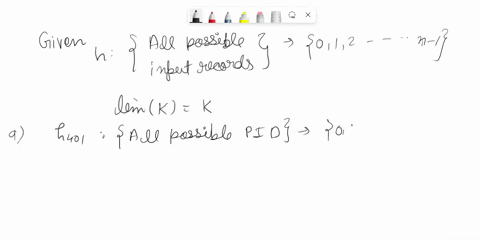 Given h: { All possible input records } → {0, 1, 2 - - - - n-1}
dim(K) = K
a) h401 : {All possible PID} → {0,